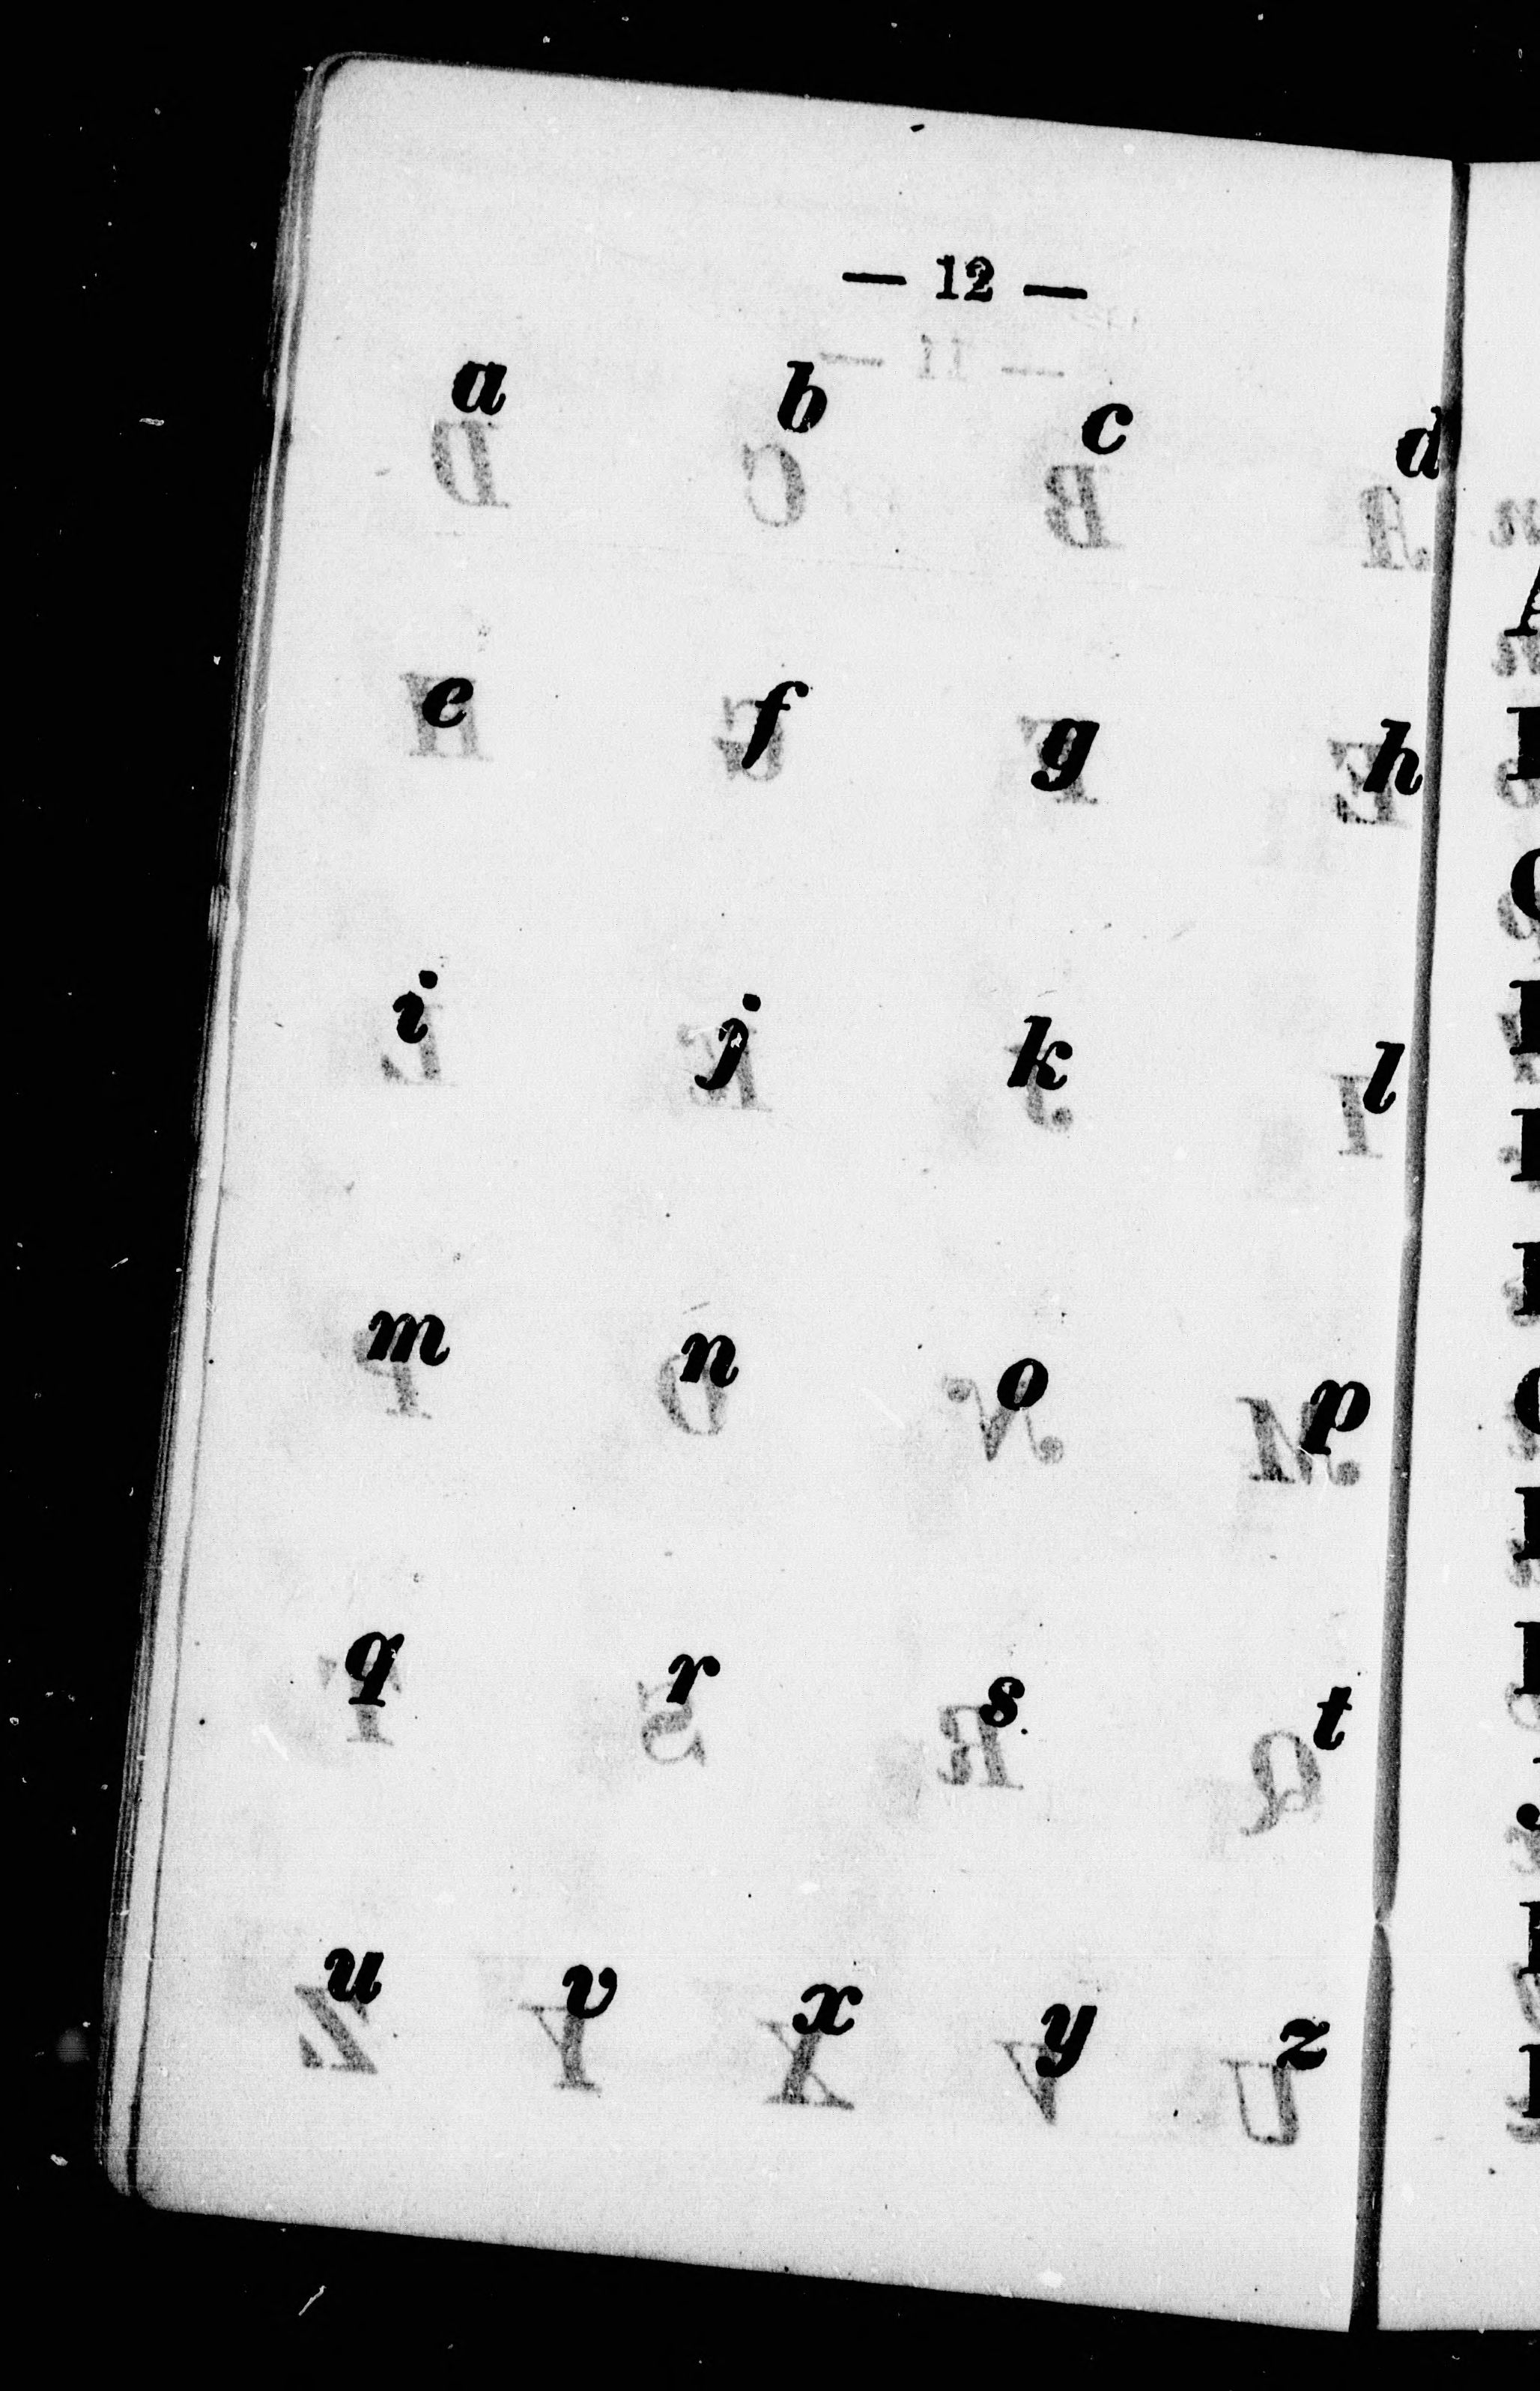 — 12 —
a b c d
e f g h
i j k l
m n o p
q r s t
u v x y z